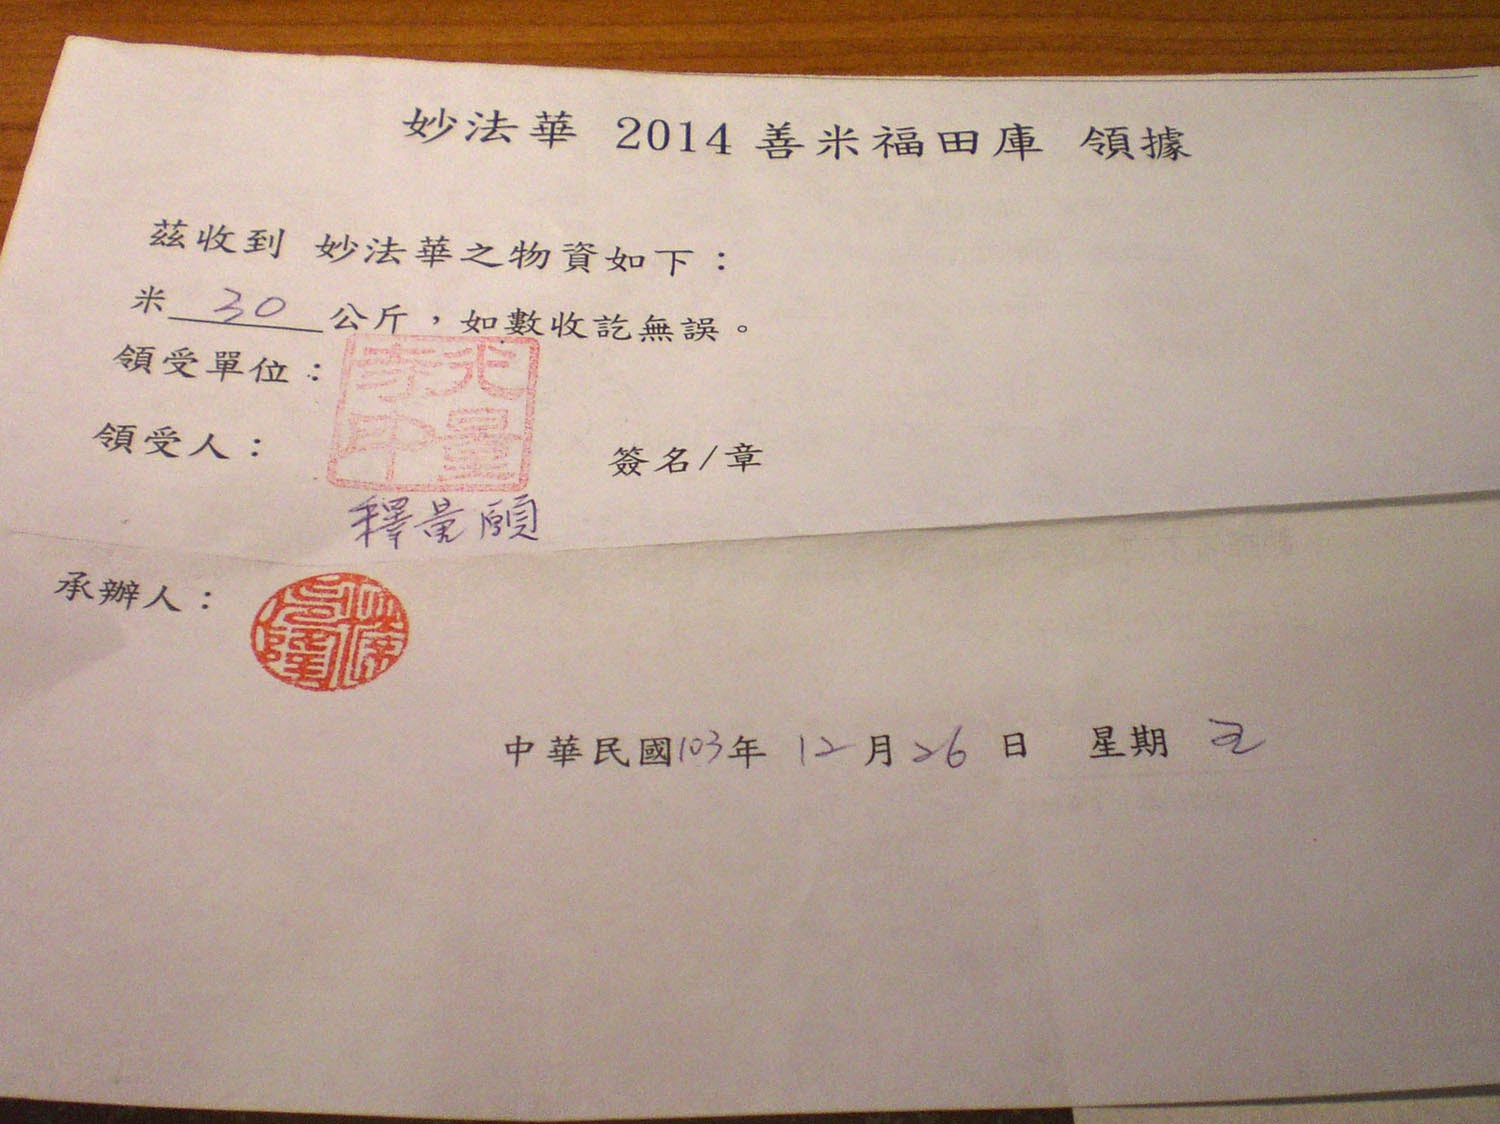 妙法華 2014 善米福田庫 領據
茲收到 妙法華之物資如下：
米 30 公斤，如數收訖無誤。
領受單位：
領受人： 簽名/章
釋量頤
承辦人：
中華民國103年 12月26日 星期五